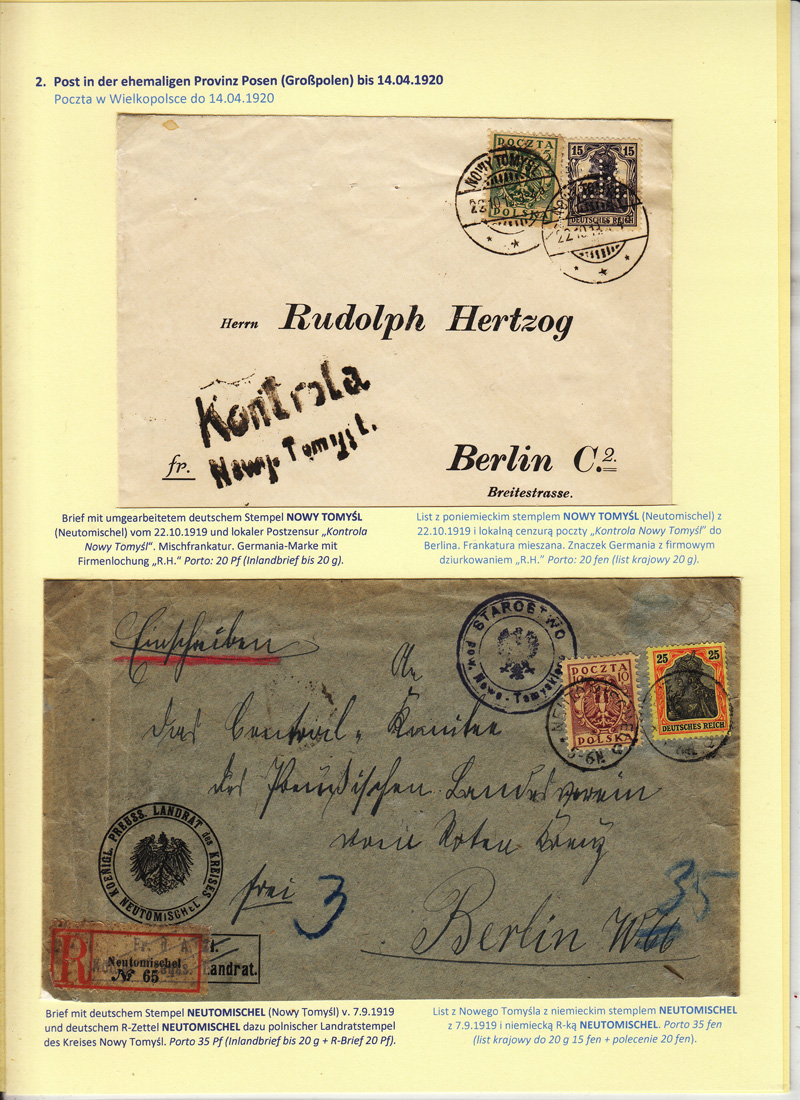 2. Post in der ehemaligen Provinz Posen (Großpolen) bis 14.04.1920
Poczta w Wielkopolsce do 14.04.1920
POCZTA
5
POLSKA
15 15
DEUTSCHES REICH
NOWY TOMYŚL
22.10.19
22.10.19
Herrn Rudolph Hertzog
Kontrola
Nowy-Tomyśl.
fr.
Berlin C.2.
Breitestrasse.
Brief mit umgearbeitetem deutschem Stempel NOWY TOMYŚL
(Neutomischel) vom 22.10.1919 und lokaler Postzensur „Kontrola
Nowy Tomyśl“. Mischfrankatur. Germania-Marke mit
Firmenlochung „R.H.“ Porto: 20 Pf (Inlandbrief bis 20 g).
List z poniemieckim stemplem NOWY TOMYŚL (Neutomischel) z
22.10.1919 i lokalną cenzurą poczty „Kontrola Nowy Tomyśl“ do
Berlina. Frankatura mieszana. Znaczek Germania z firmowym
dziurkowaniem „R.H.“ Porto: 20 fen (list krajowy 20 g).
Einschreiben
STAROSTWO
pow. Nowo-Tomyskiego
POCZTA
10
POLSKA
25 25
DEUTSCHES REICH
An
das Central-Komitee
des Preußischen Landesverein
vom Roten Kreuz
frei 3
35
Berlin W.66
KOENIGL. PREUSS. LANDRAT des KREISES
NEUTOMISCHEL
R
Neutomischel
№ 65
Landrat.
Brief mit deutschem Stempel NEUTOMISCHEL (Nowy Tomyśl) v. 7.9.1919
und deutschem R-Zettel NEUTOMISCHEL dazu polnischer Landratstempel
des Kreises Nowy Tomyśl. Porto 35 Pf (Inlandbrief bis 20 g + R-Brief 20 Pf).
List z Nowego Tomyśla z niemieckim stemplem NEUTOMISCHEL
z 7.9.1919 i niemiecką R-ką NEUTOMISCHEL. Porto 35 fen
(list krajowy do 20 g 15 fen + polecenie 20 fen).